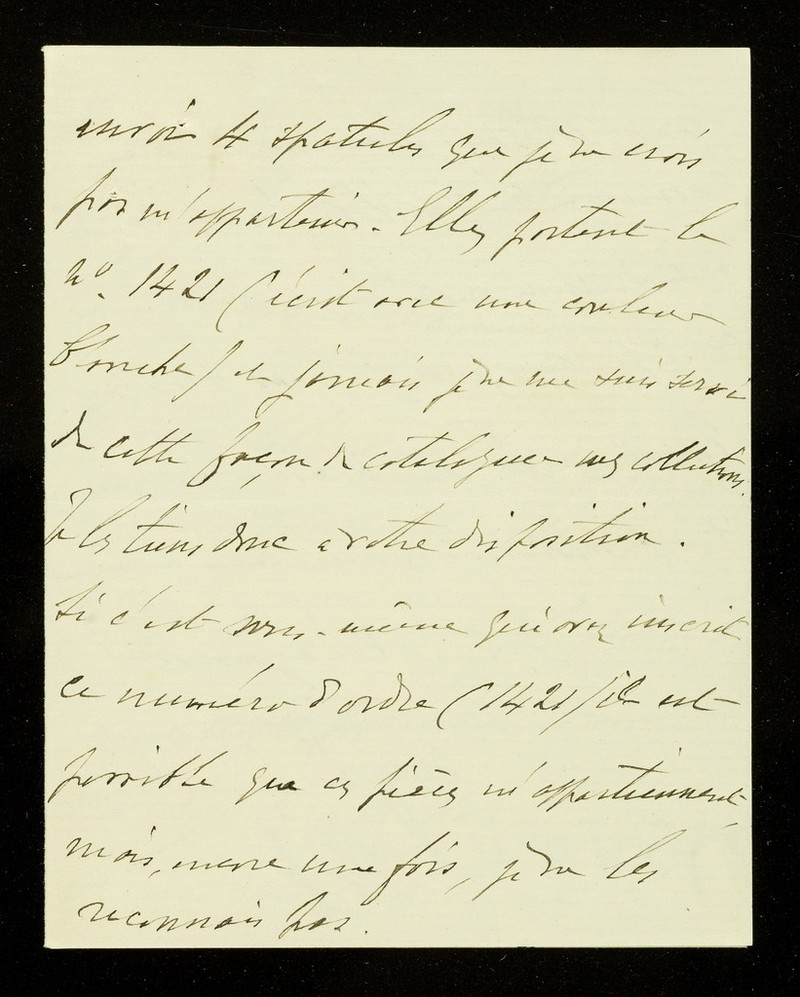 envoi 4 spatules que je ne crois
pas m'appartenir. Elles portent le
n°. 1421 (écrit avec une couleur
blanche) et jamais je ne me suis servi
de cette façon de cataloguer mes collections.
Je les tiens donc à votre disposition.
Si c'est vous-même qui avez inscrit
ce numéro d'ordre (1421) il est
possible que ces pièces m'appartiennent,
mais, encore une fois, je ne les
reconnais pas.